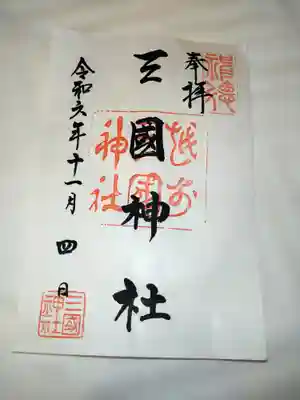 奉拝
三國神社
令和六年十一月四日
三國神社